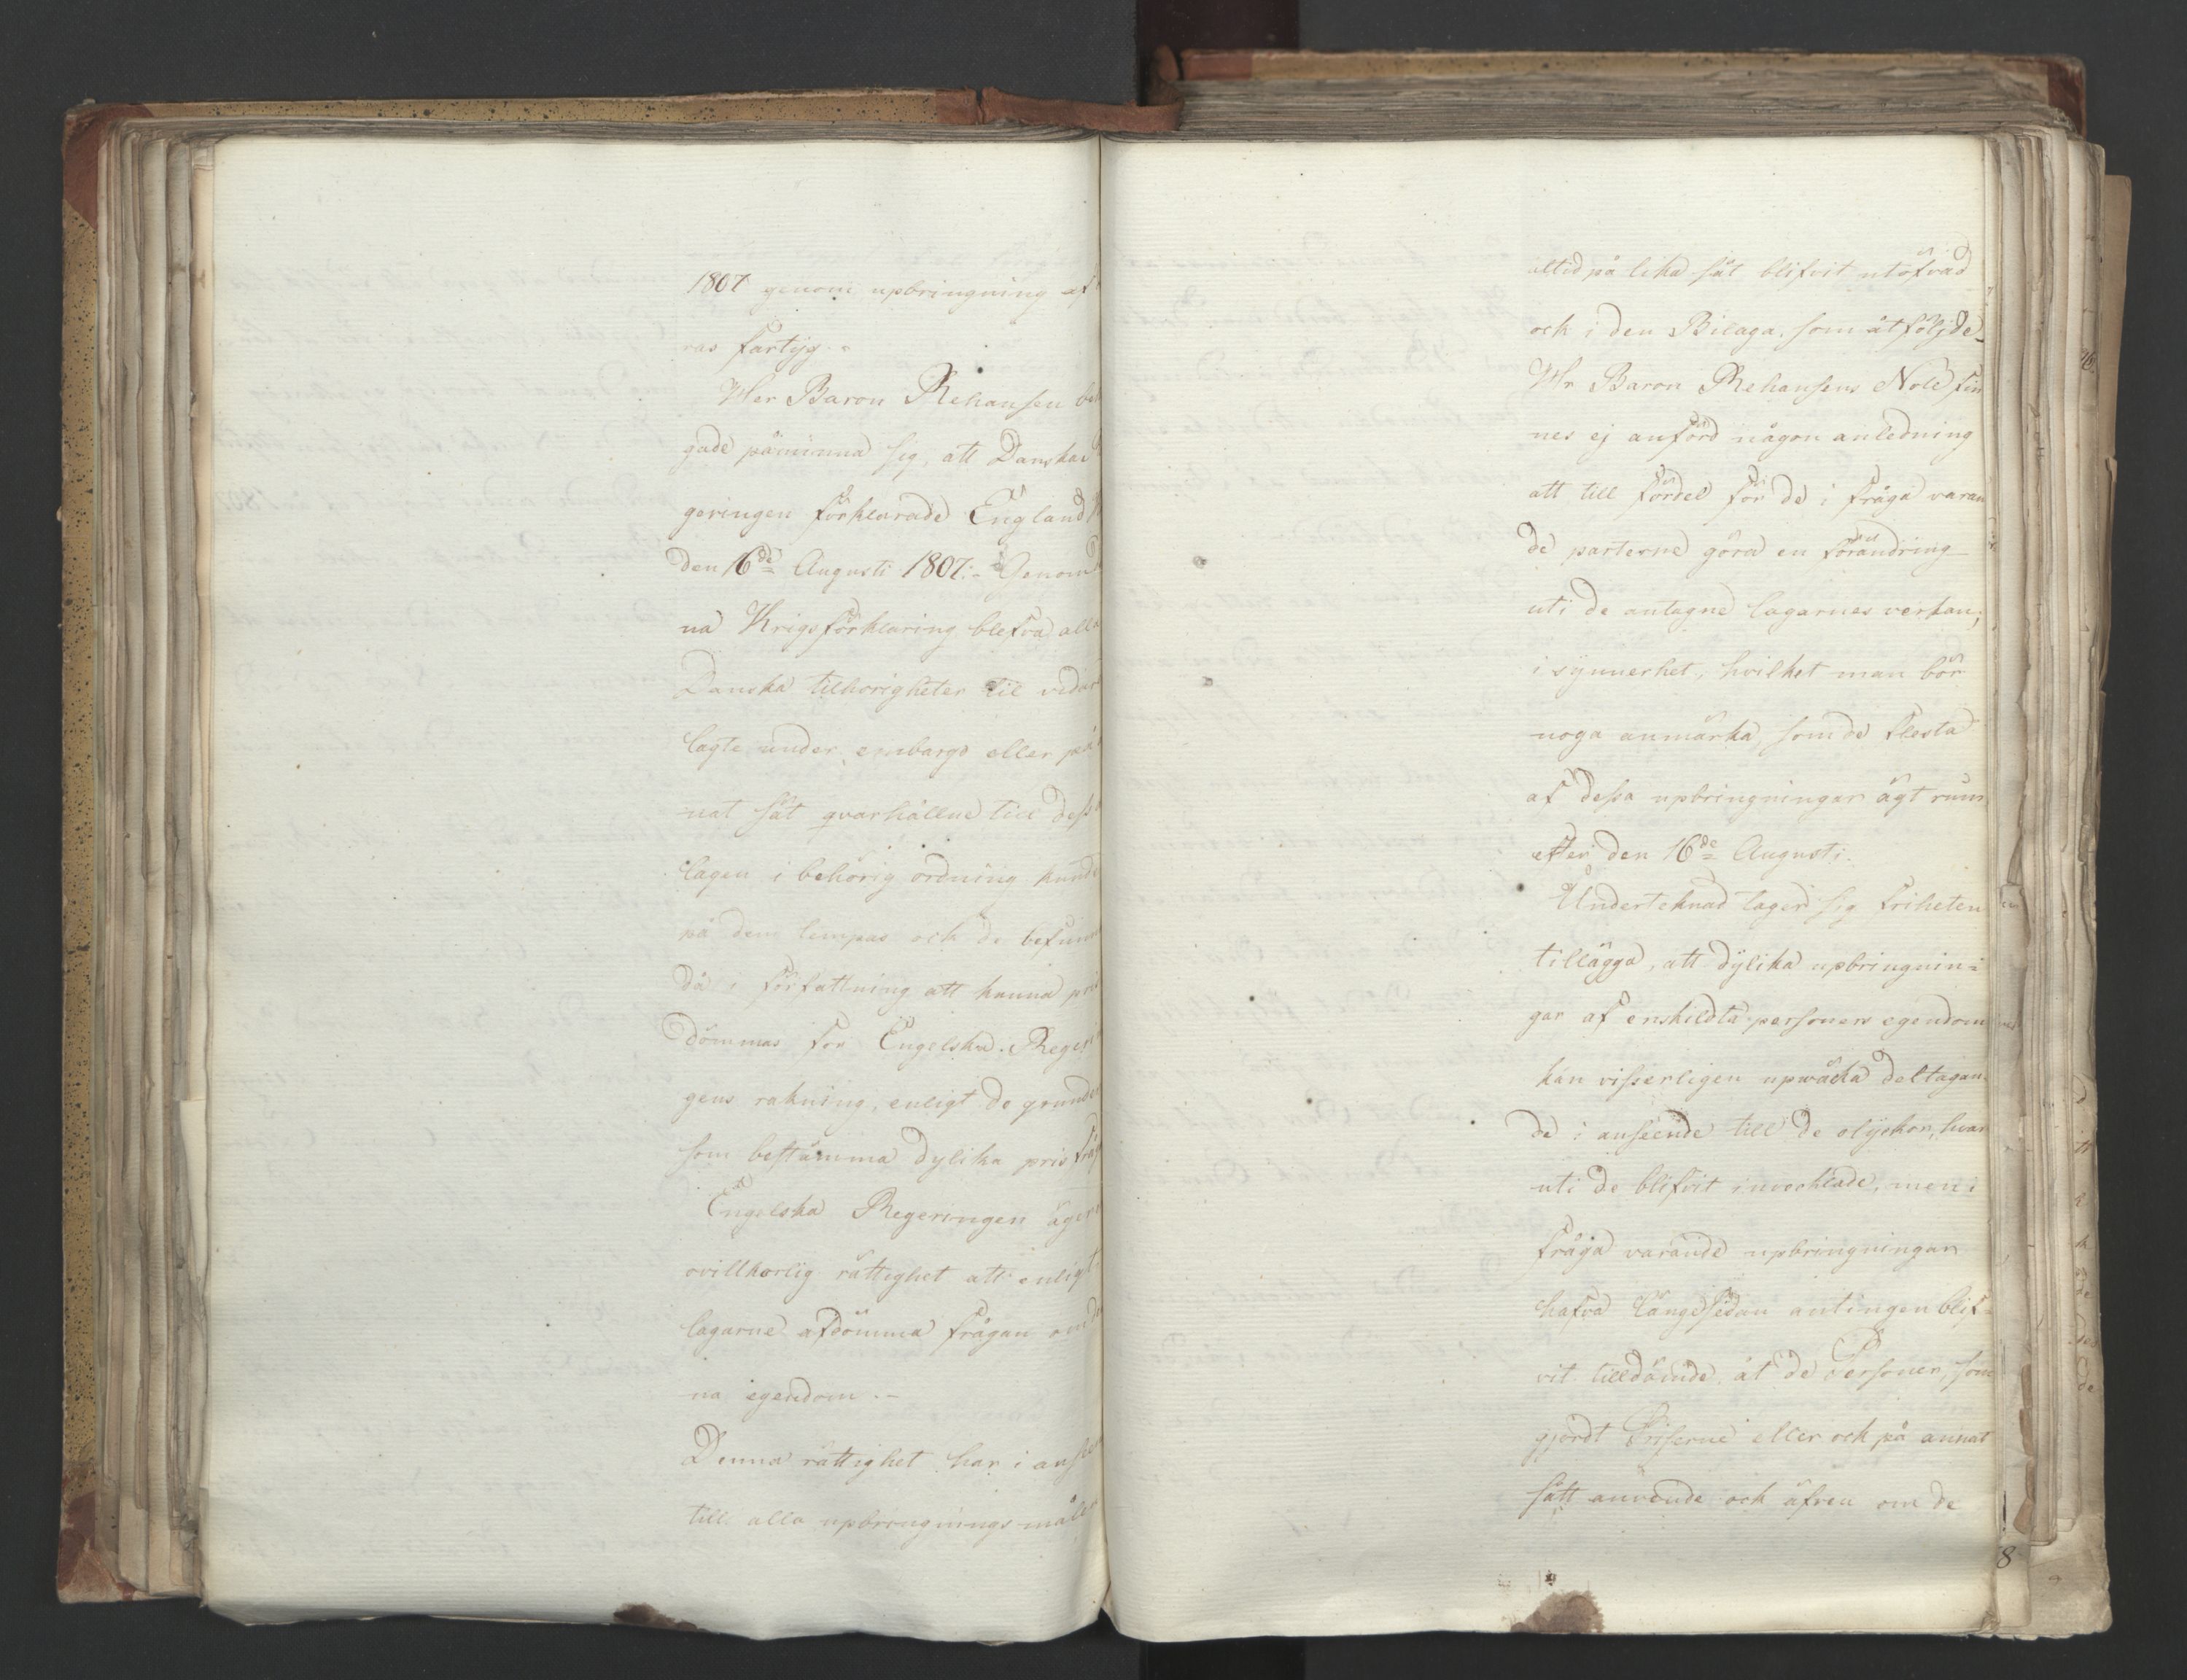 1807 genom upbringning af
ras fartyg.
Herr Baron Rehausen be
gade påminna sig, att Danska
geringen förklarade England
den 16de Augusti 1807. Genom
na Krigsförklaring blefvo alla
Danska tilhörigheter til
lagte under embargo eller på
nat sät qvarhållne till dess
lagen i behörig ordning kunde
på dem lempas och de befun
då i författning att kunna pris
dömmas för Engelska Reger
gens räkning, enligt de grunder
som bestämma dylika pris
Engelska Regeringen äger
ovillkorlig rättighet att enligt
lagarne afdömma frågan om
na egendom.
Denna rättighet har i anse
till alla upbringnings-mål
altid på lika sät blifvit utöfvad
och i den Bilaga, som åtföljde
Hr Baron Rehausens Note fin
nes ej anförd någon anledning
att till fördel för de i fråga varan
de parterne göra en förändring
uti de antagne lagarnes verkan,
i synnerhet, hvilket man bör
noga anmärka, som de flesta
af dessa upbringningar ägt rum
efter den 16de Augusti.
Undertecknad tager sig friheten
tillägga, att dylika upbringnin=
gar af enskildta personers egendom
kan visserligen upwäcka deltagan
de i anseende till de olyckor, hvar
uti de blifvit invecklade, men i
fråga varande upbringningar
hafva längesedan antingen blif=
vit tilldömde åt de Personer, som
gjordt Priserne eller ock på annat
sätt använde och äfven om de
8